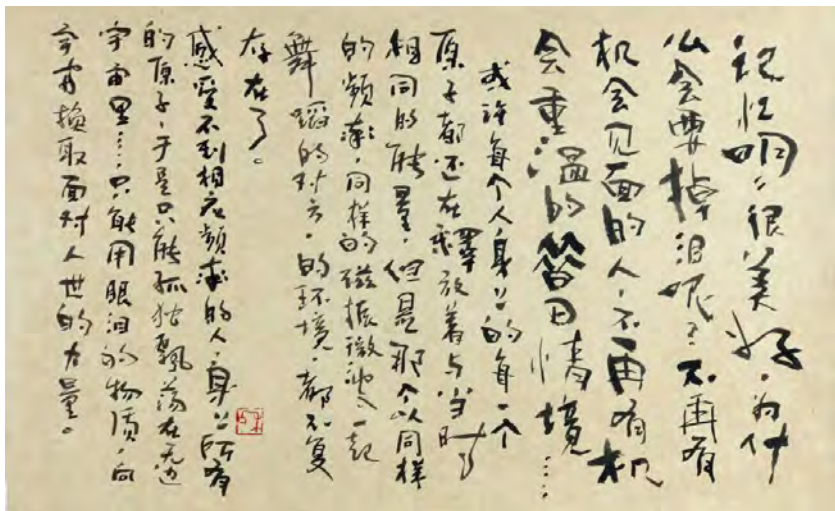 记忆明明很美好,为什
么会要掉泪呢?不再有
机会见面的人,不再有机
会重温的昔日情境……
或许每个人身上的每一个
原子都还在釋放着与当时
相同的能量,但是那个以同样
的頻率,同样的磁振波一起
舞蹈的对方,的环境,都不复
存在了。
感受不到相应頻率的人,身上所有
的原子,于是只能孤独飄荡在无边
宇宙里……只能用眼泪的物质,向
宇宙换取面对人世的力量。